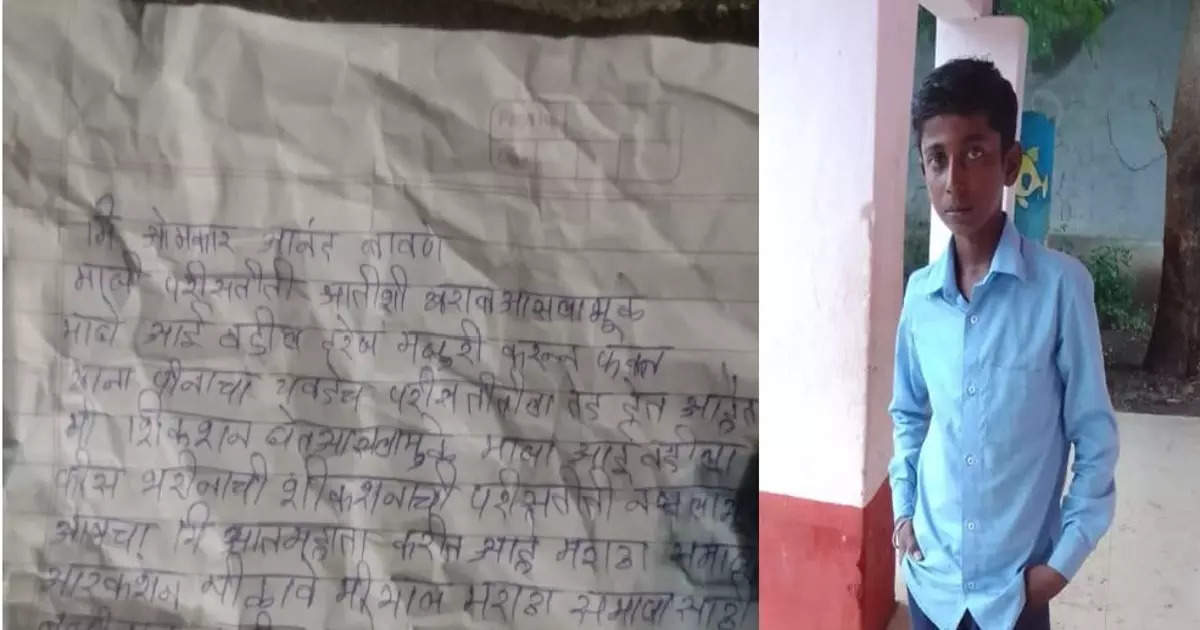 मि ओमकार आनंद बावणे
माझी परीसतीती आतीशी खराब आसलामूळे
माझे आई वडील दररोज मजूरी करून फक्त
खाना पीनाचा यवढेच परीसतीतीला तोंड देत आहेत
मी शिकशन घेत आसलामुळे माला आई वडीला
फीस भरीनाची शीकशनाची परीसतीती नसलामु
आमचा मि आतमहता करीत आहे मराठा समाज
आरकशन मीळावे मी माल मराठा समाजासाठी